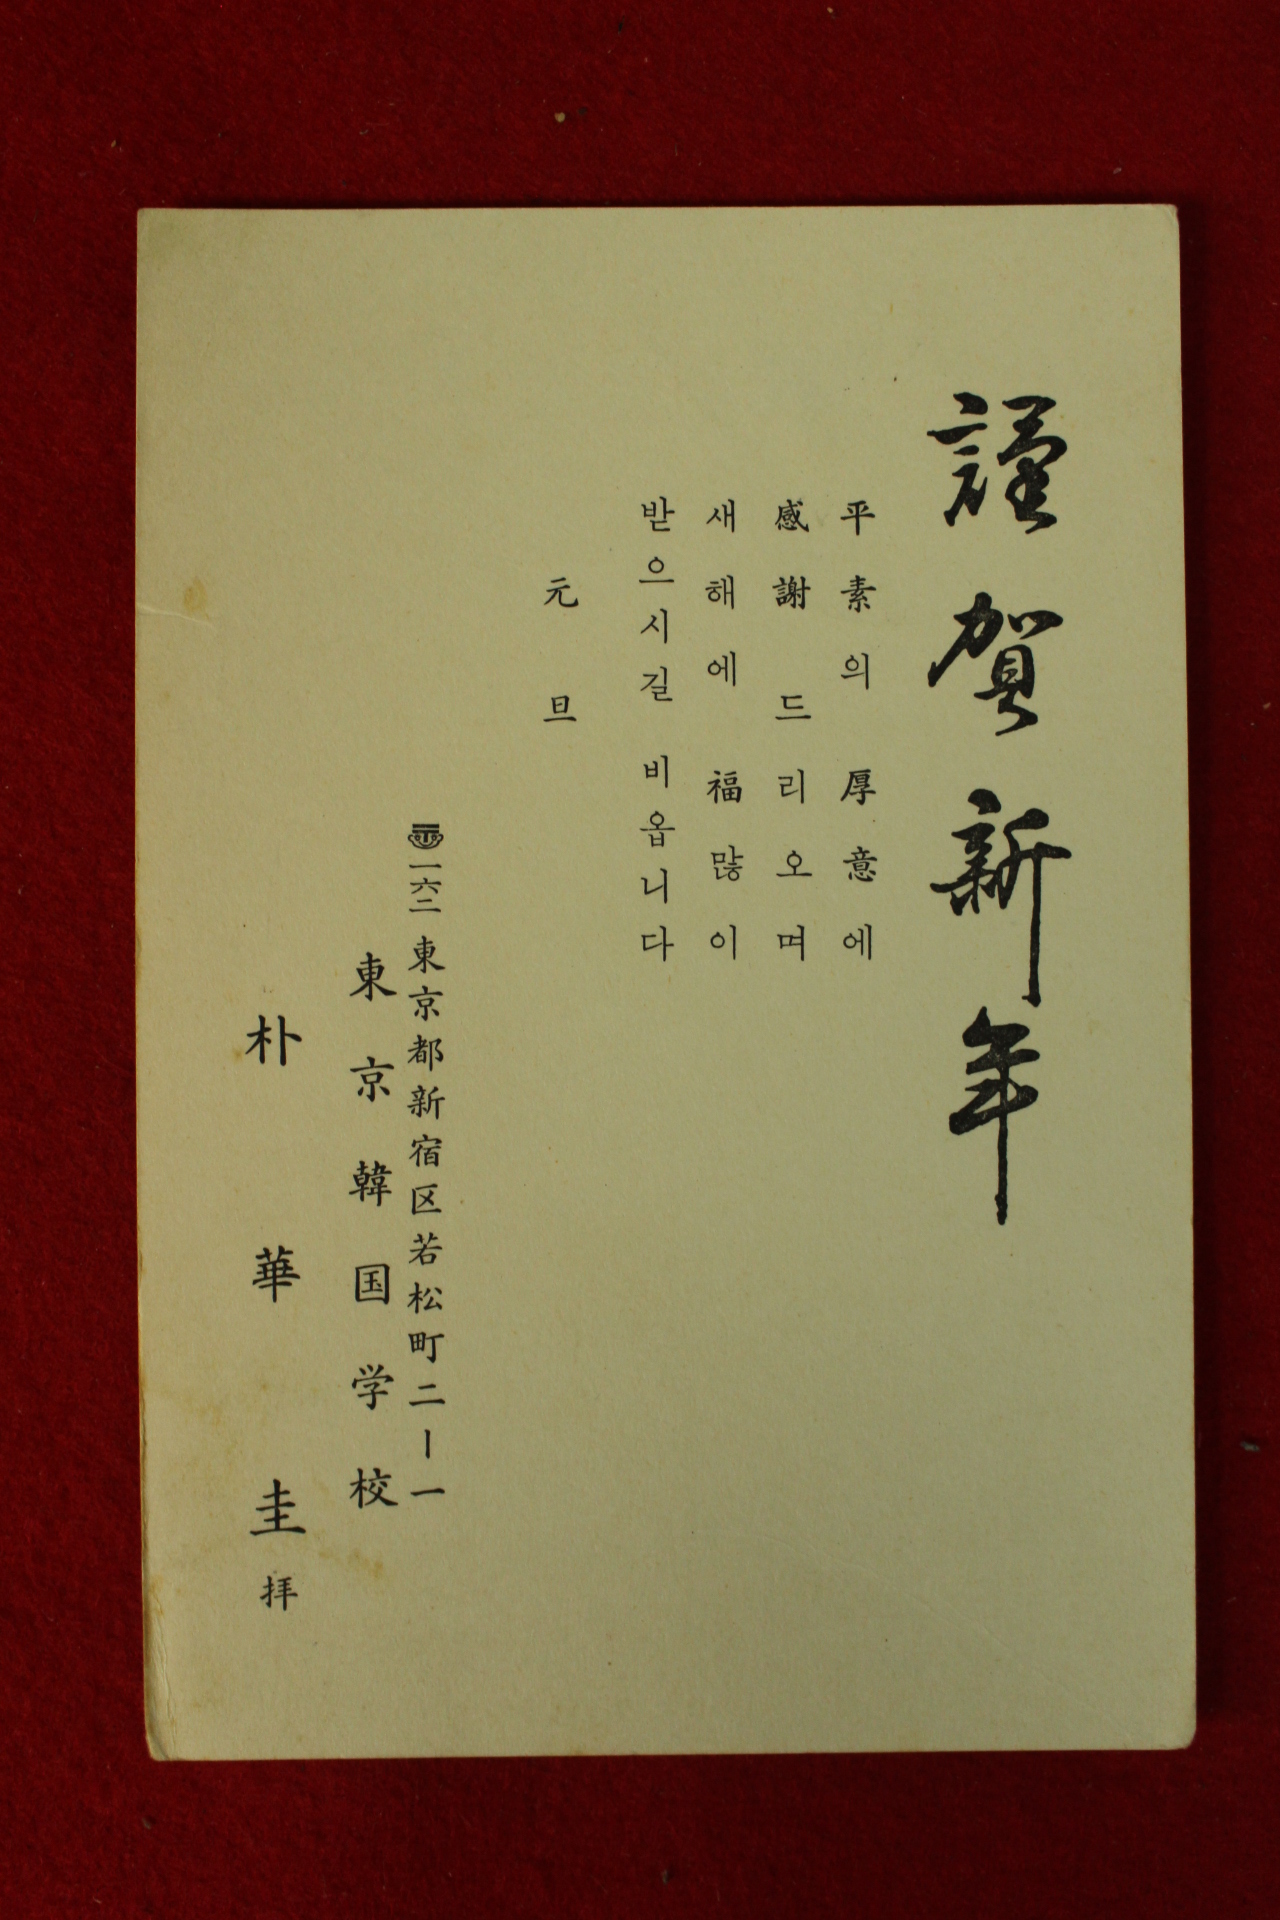 謹賀新年
平素의 厚意에
感謝 드리오며
새해에 福많이
받으시길 비옵니다
元旦
〠一六二 東京都新宿区若松町二ー一
東京韓国学校
朴華圭拝